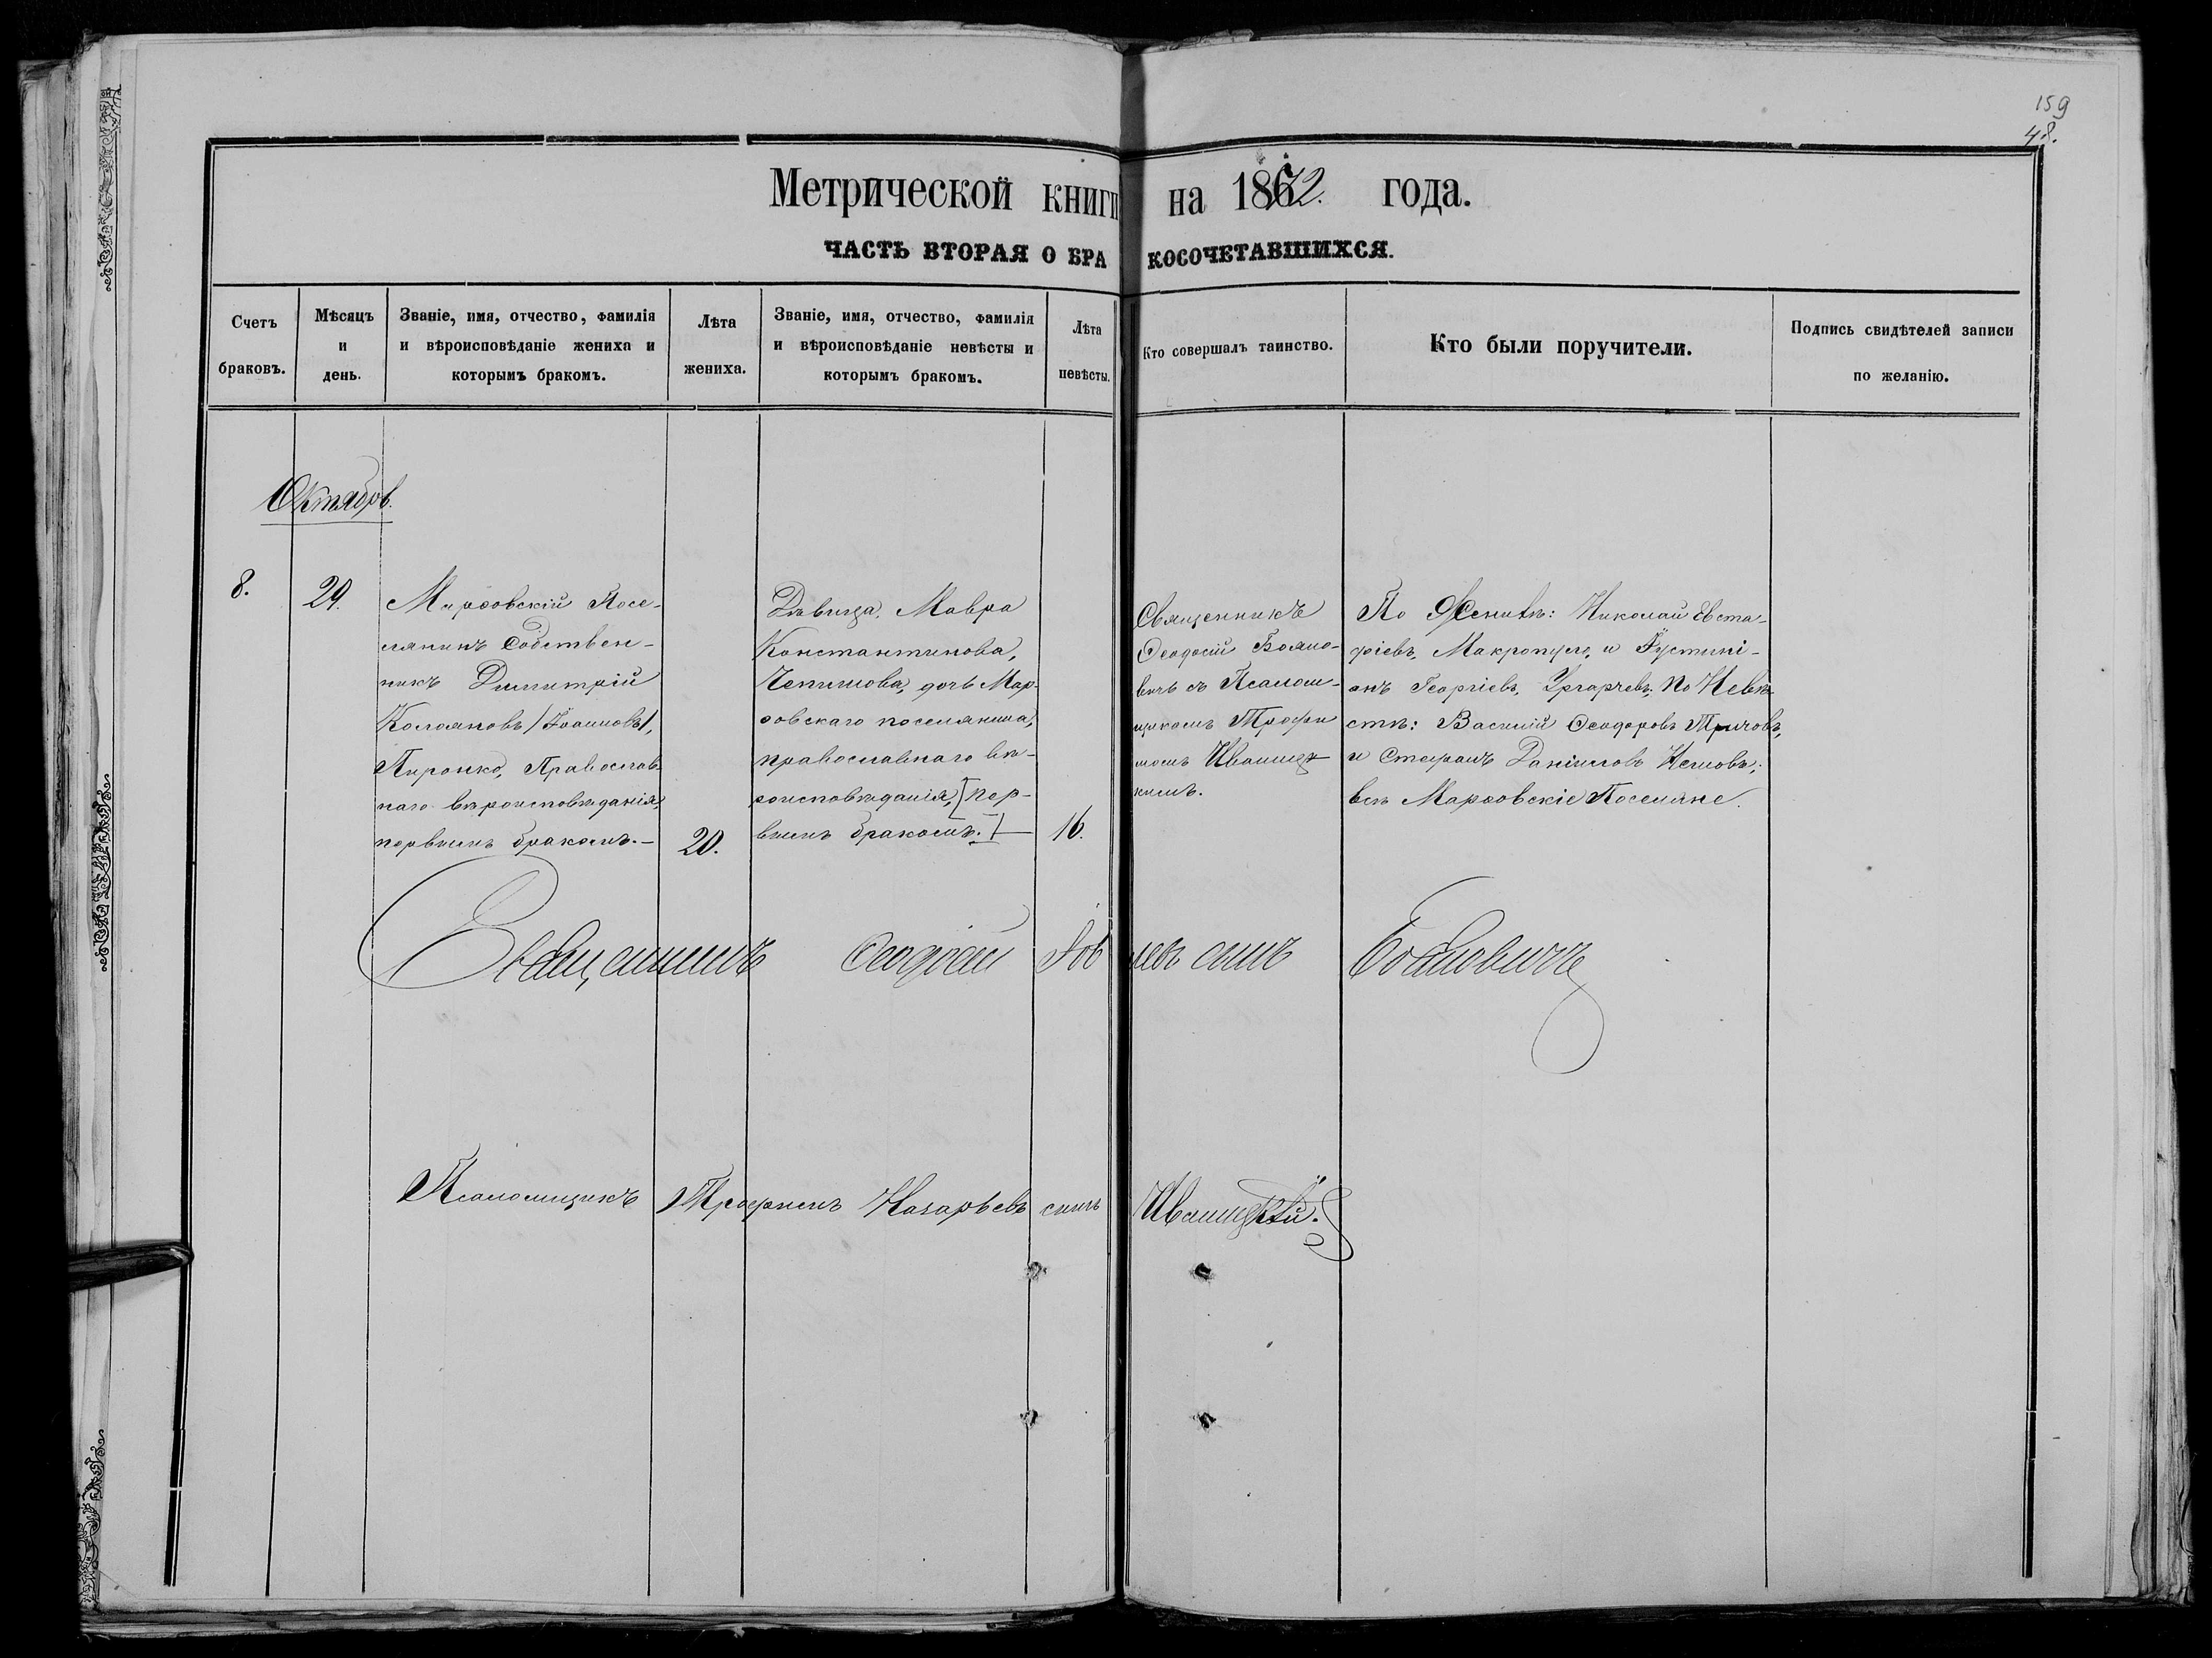 159
48.
Метрической книги на 1872. года.
ЧАСТЬ ВТОРАЯ О БРАКОСОЧЕТАВШИХСЯ.
Счетъ
браковъ.
Мѣсяцъ
и
день.
Званіе, имя, отчество, фамилія
и вѣроисповѣданіе жениха и
которымъ бракомъ.
Лѣта
жениха.
Званіе, имя, отчество, фамилія
и вѣроисповѣданіе невѣсты и
которымъ бракомъ.
Лѣта
невѣсты.
Кто совершалъ таинство.
Кто были поручители.
Подпись свидѣтелей записи
по желанію.
Октябрь.
8.
29.
Посе-
лянинъ Собствен-
никъ Димитрій
/Іоанновъ/,
Православ-
наго вѣроисповѣданія,
первымъ бракомъ.—
20.
Дѣвица, Мавра
Константинова,
дочь Мар-
поселянина,
православнаго вѣ-
роисповѣданія, [пер-
вымъ бракомъ.]—
16.
Священникъ
Ѳеодосій Бояно-
вичъ съ Псалом-
щикомъ Трофи
момъ Иваниц-
кимъ.
По Женихѣ: Николай Евста-
фіевъ, и Іустині-
анъ Георгіевъ, По Невѣ-
стѣ: Василій Ѳеодоровъ
и Стефанъ Даніиловъ
всѣ Поселяне.
Священникъ Ѳеодосій Іовлевъ сынъ Бояновичъ
Псаломщикъ Трофимъ Назарьевъ сынъ Иваницкій.